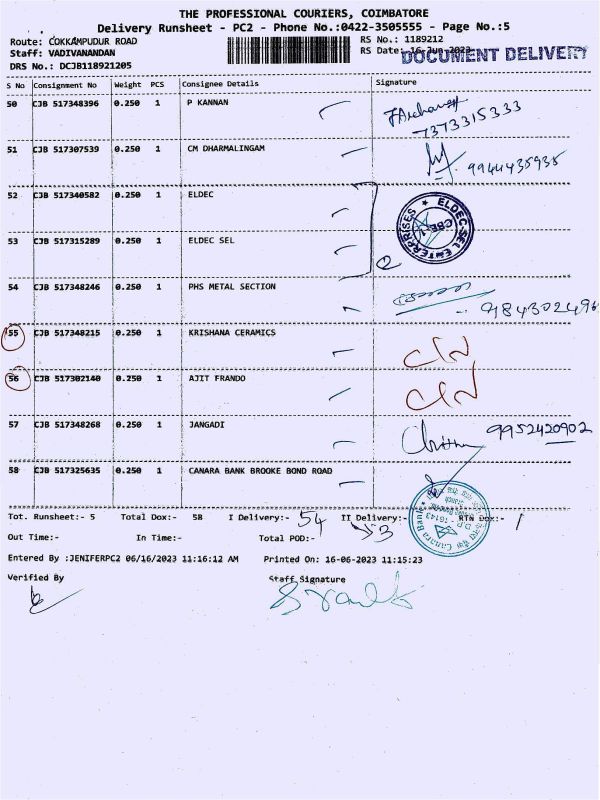 THE PROFESSIONAL COURIERS, COIMBATORE
Delivery Runsheet - PC2 - Phone No.:0422-3505555 - Page No.:5
Route: COKKAMPUDUR ROAD
RS No.: 1189212
Staff: VADIVANANDAN
RS Date: 16-Jun-2023
DOCUMENT DELIVERY
DRS No.: DCJB118921205
S No Consignment No Weight PCS Consignee Details Signature
50 CJB 517348396 0.250 1 P KANNAN
7373315333
51 CJB 517307539 0.250 1 CM DHARMALINGAM
9944435935
52 CJB 517340582 0.250 1 ELDEC
ELDEC-SEL ENTERPRISES
CBE-1
53 CJB 517315289 0.250 1 ELDEC SEL
2
54 CJB 517348246 0.250 1 PHS METAL SECTION
55 CJB 517348215 0.250 1 KRISHANA CERAMICS
56 CJB 517302140 0.250 1 AJIT FRANDO
57 CJB 517348268 0.250 1 JANGADI
9952420902
58 CJB 517325635 0.250 1 CANARA BANK BROOKE BOND ROAD
Canara Bank
Tot. Runsheet:- 5 Total Dox:- 58 I Delivery:- 54 II Delivery:- 3 RTN Dox:- 1
Out Time:- In Time:- Total POD:-
Entered By :JENIFERPC2 06/16/2023 11:16:12 AM Printed On: 16-06-2023 11:15:23
Verified By Staff Signature